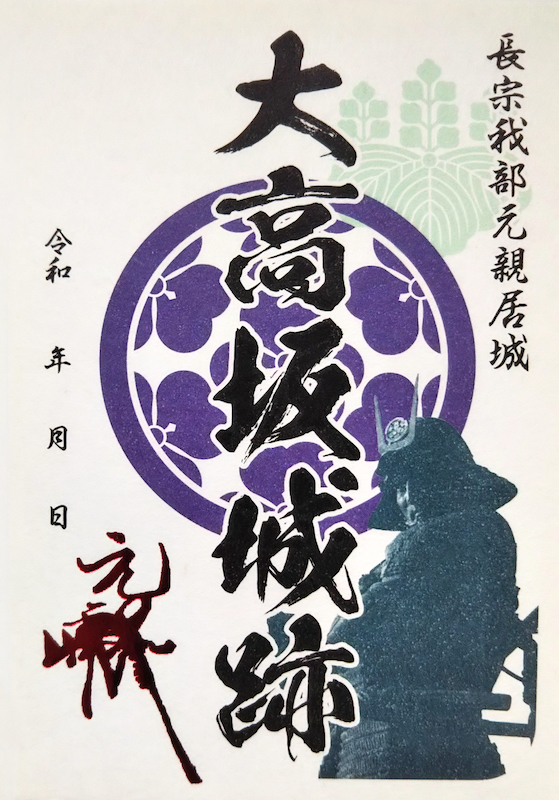 長宗我部元親居城
大高坂城跡
令和 年 月 日
元親